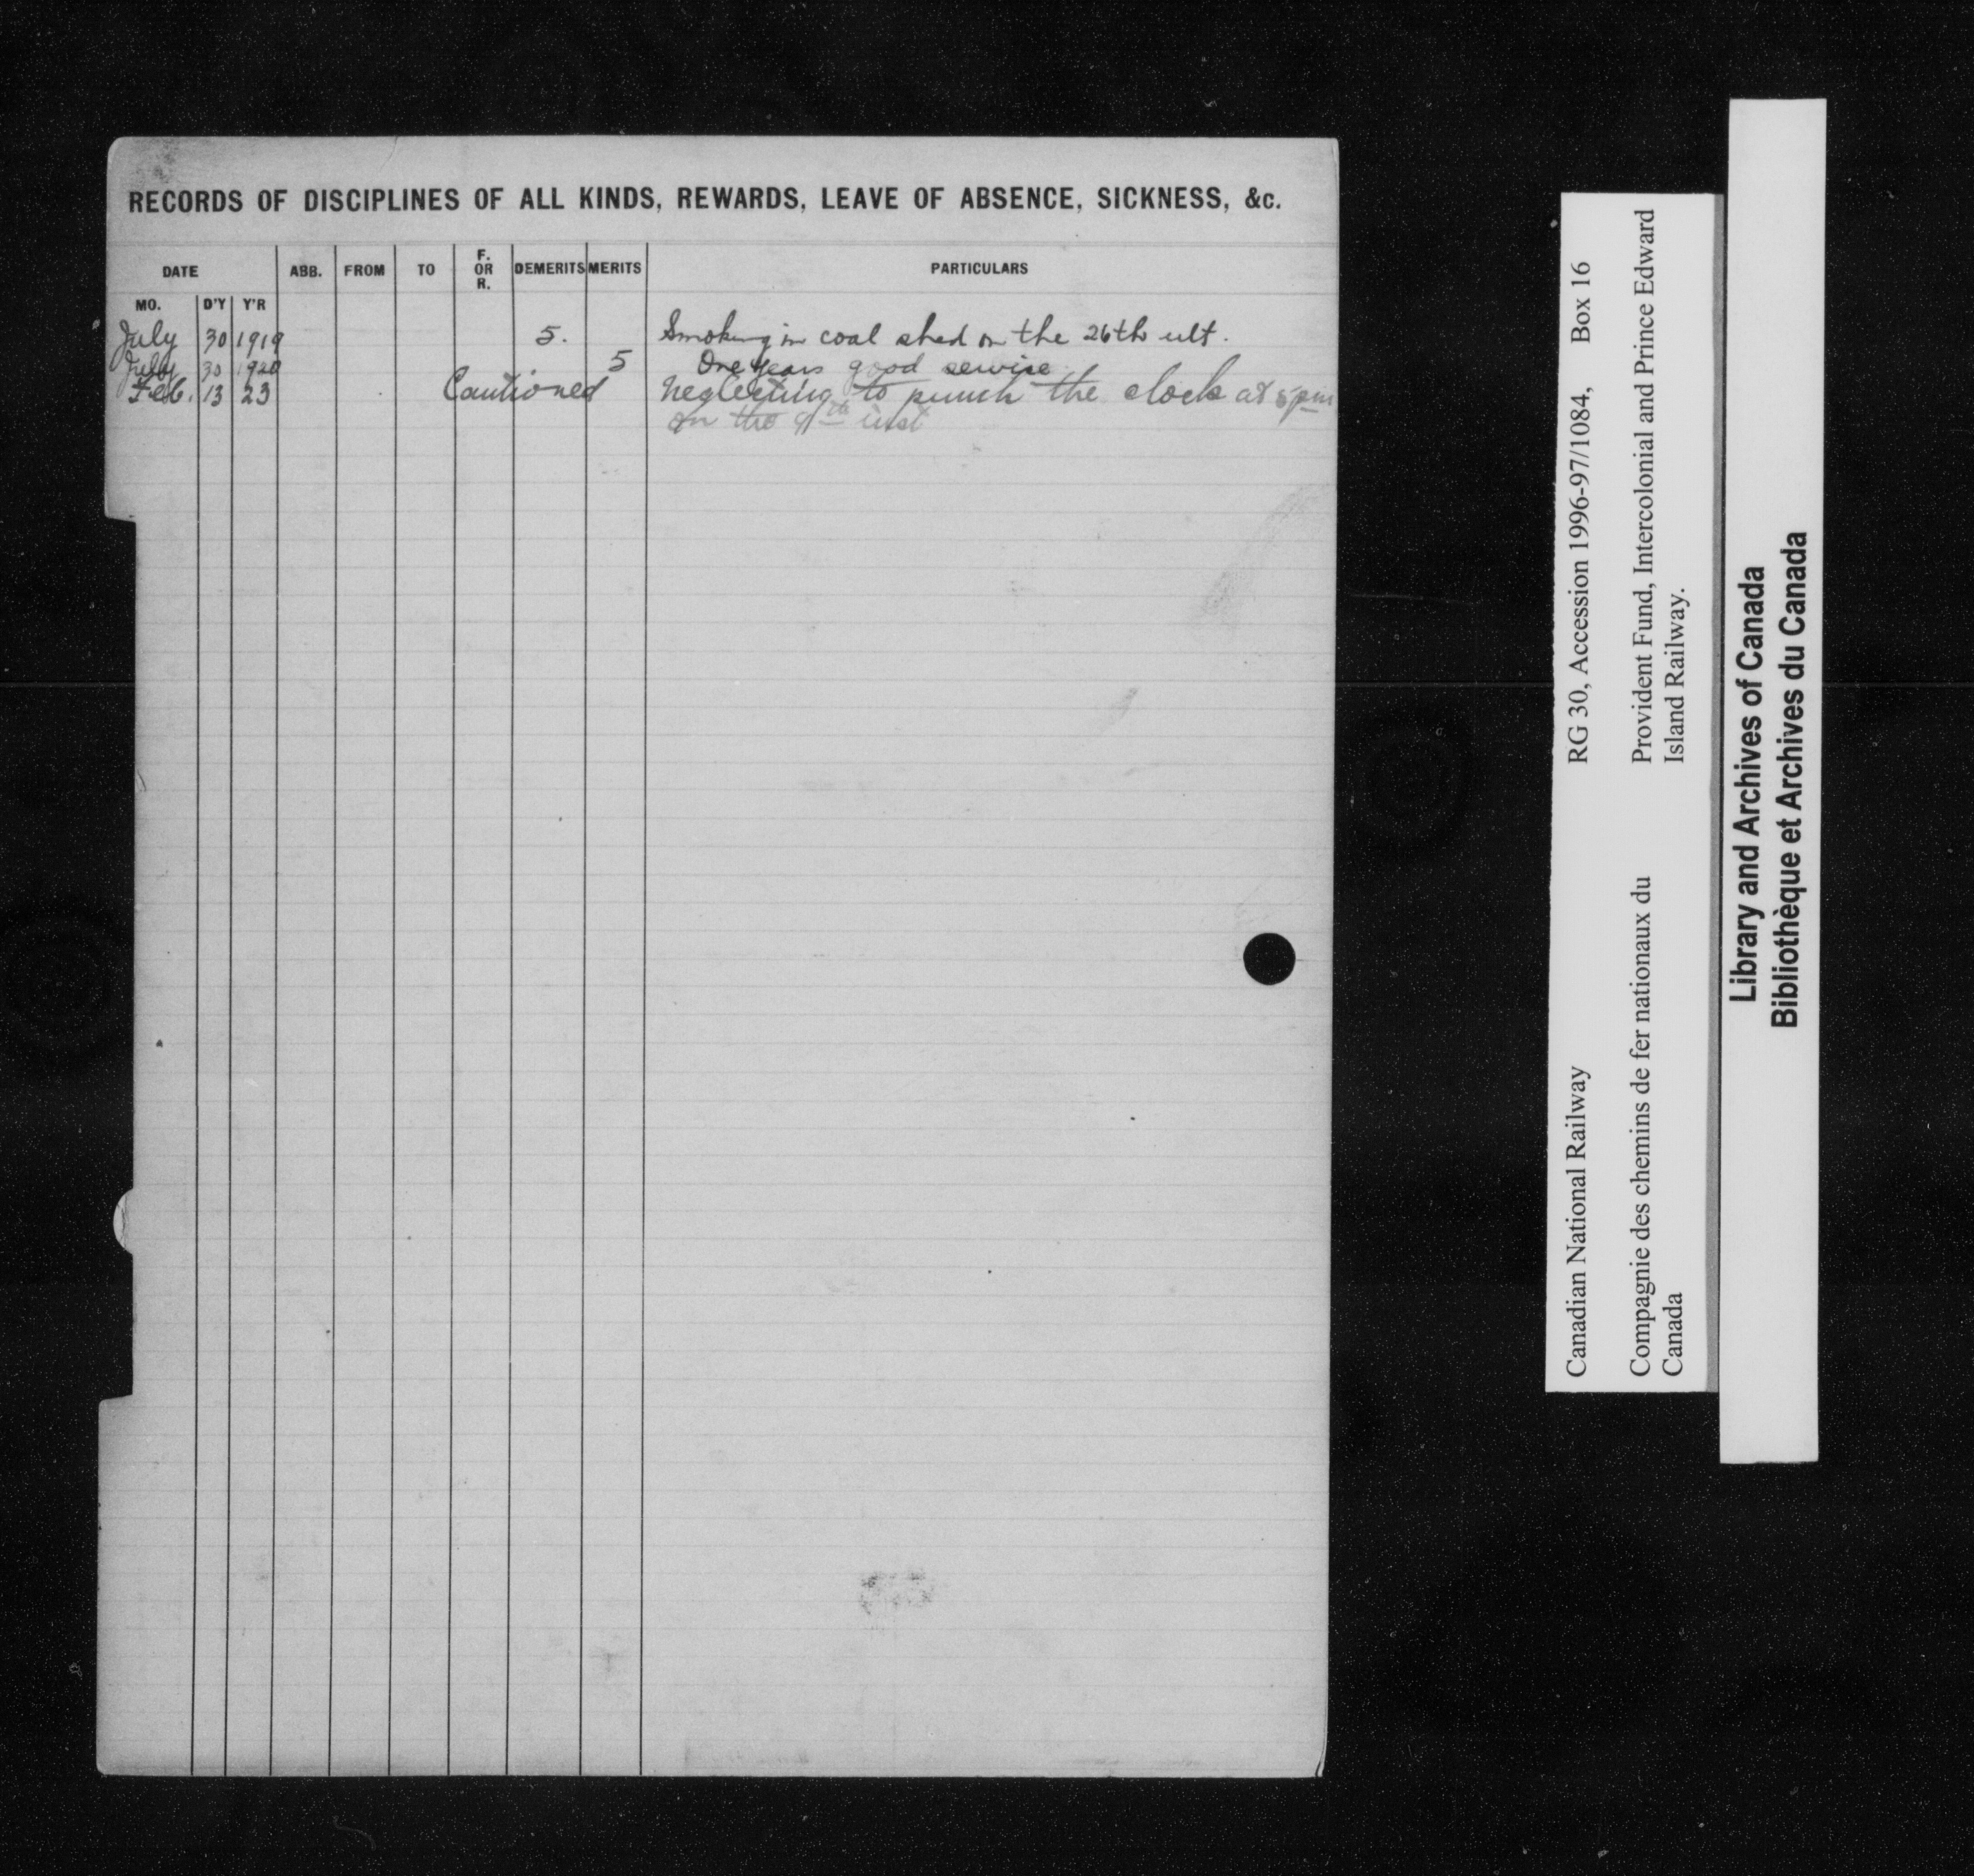 RECORDS OF DISCIPLINES OF ALL KINDS, REWARDS, LEAVE OF ABSENCE, SICKNESS, &c.
DATE ABB. FROM TO F. OR R. DEMERITS MERITS PARTICULARS
MO. D'Y Y'R
July 30 1919 5. Smoking in coal shed on the 26th ult.
July 30 1920 5 One years good service
Feb. 13 23 Cautioned neglecting to punch the clock at 5 pm
on the 9th inst
Canadian National Railway RG 30, Accession 1996-97/1084, Box 16
Compagnie des chemins de fer nationaux du Provident Fund, Intercolonial and Prince Edward
Canada Island Railway.
Library and Archives of Canada
Bibliothèque et Archives du Canada